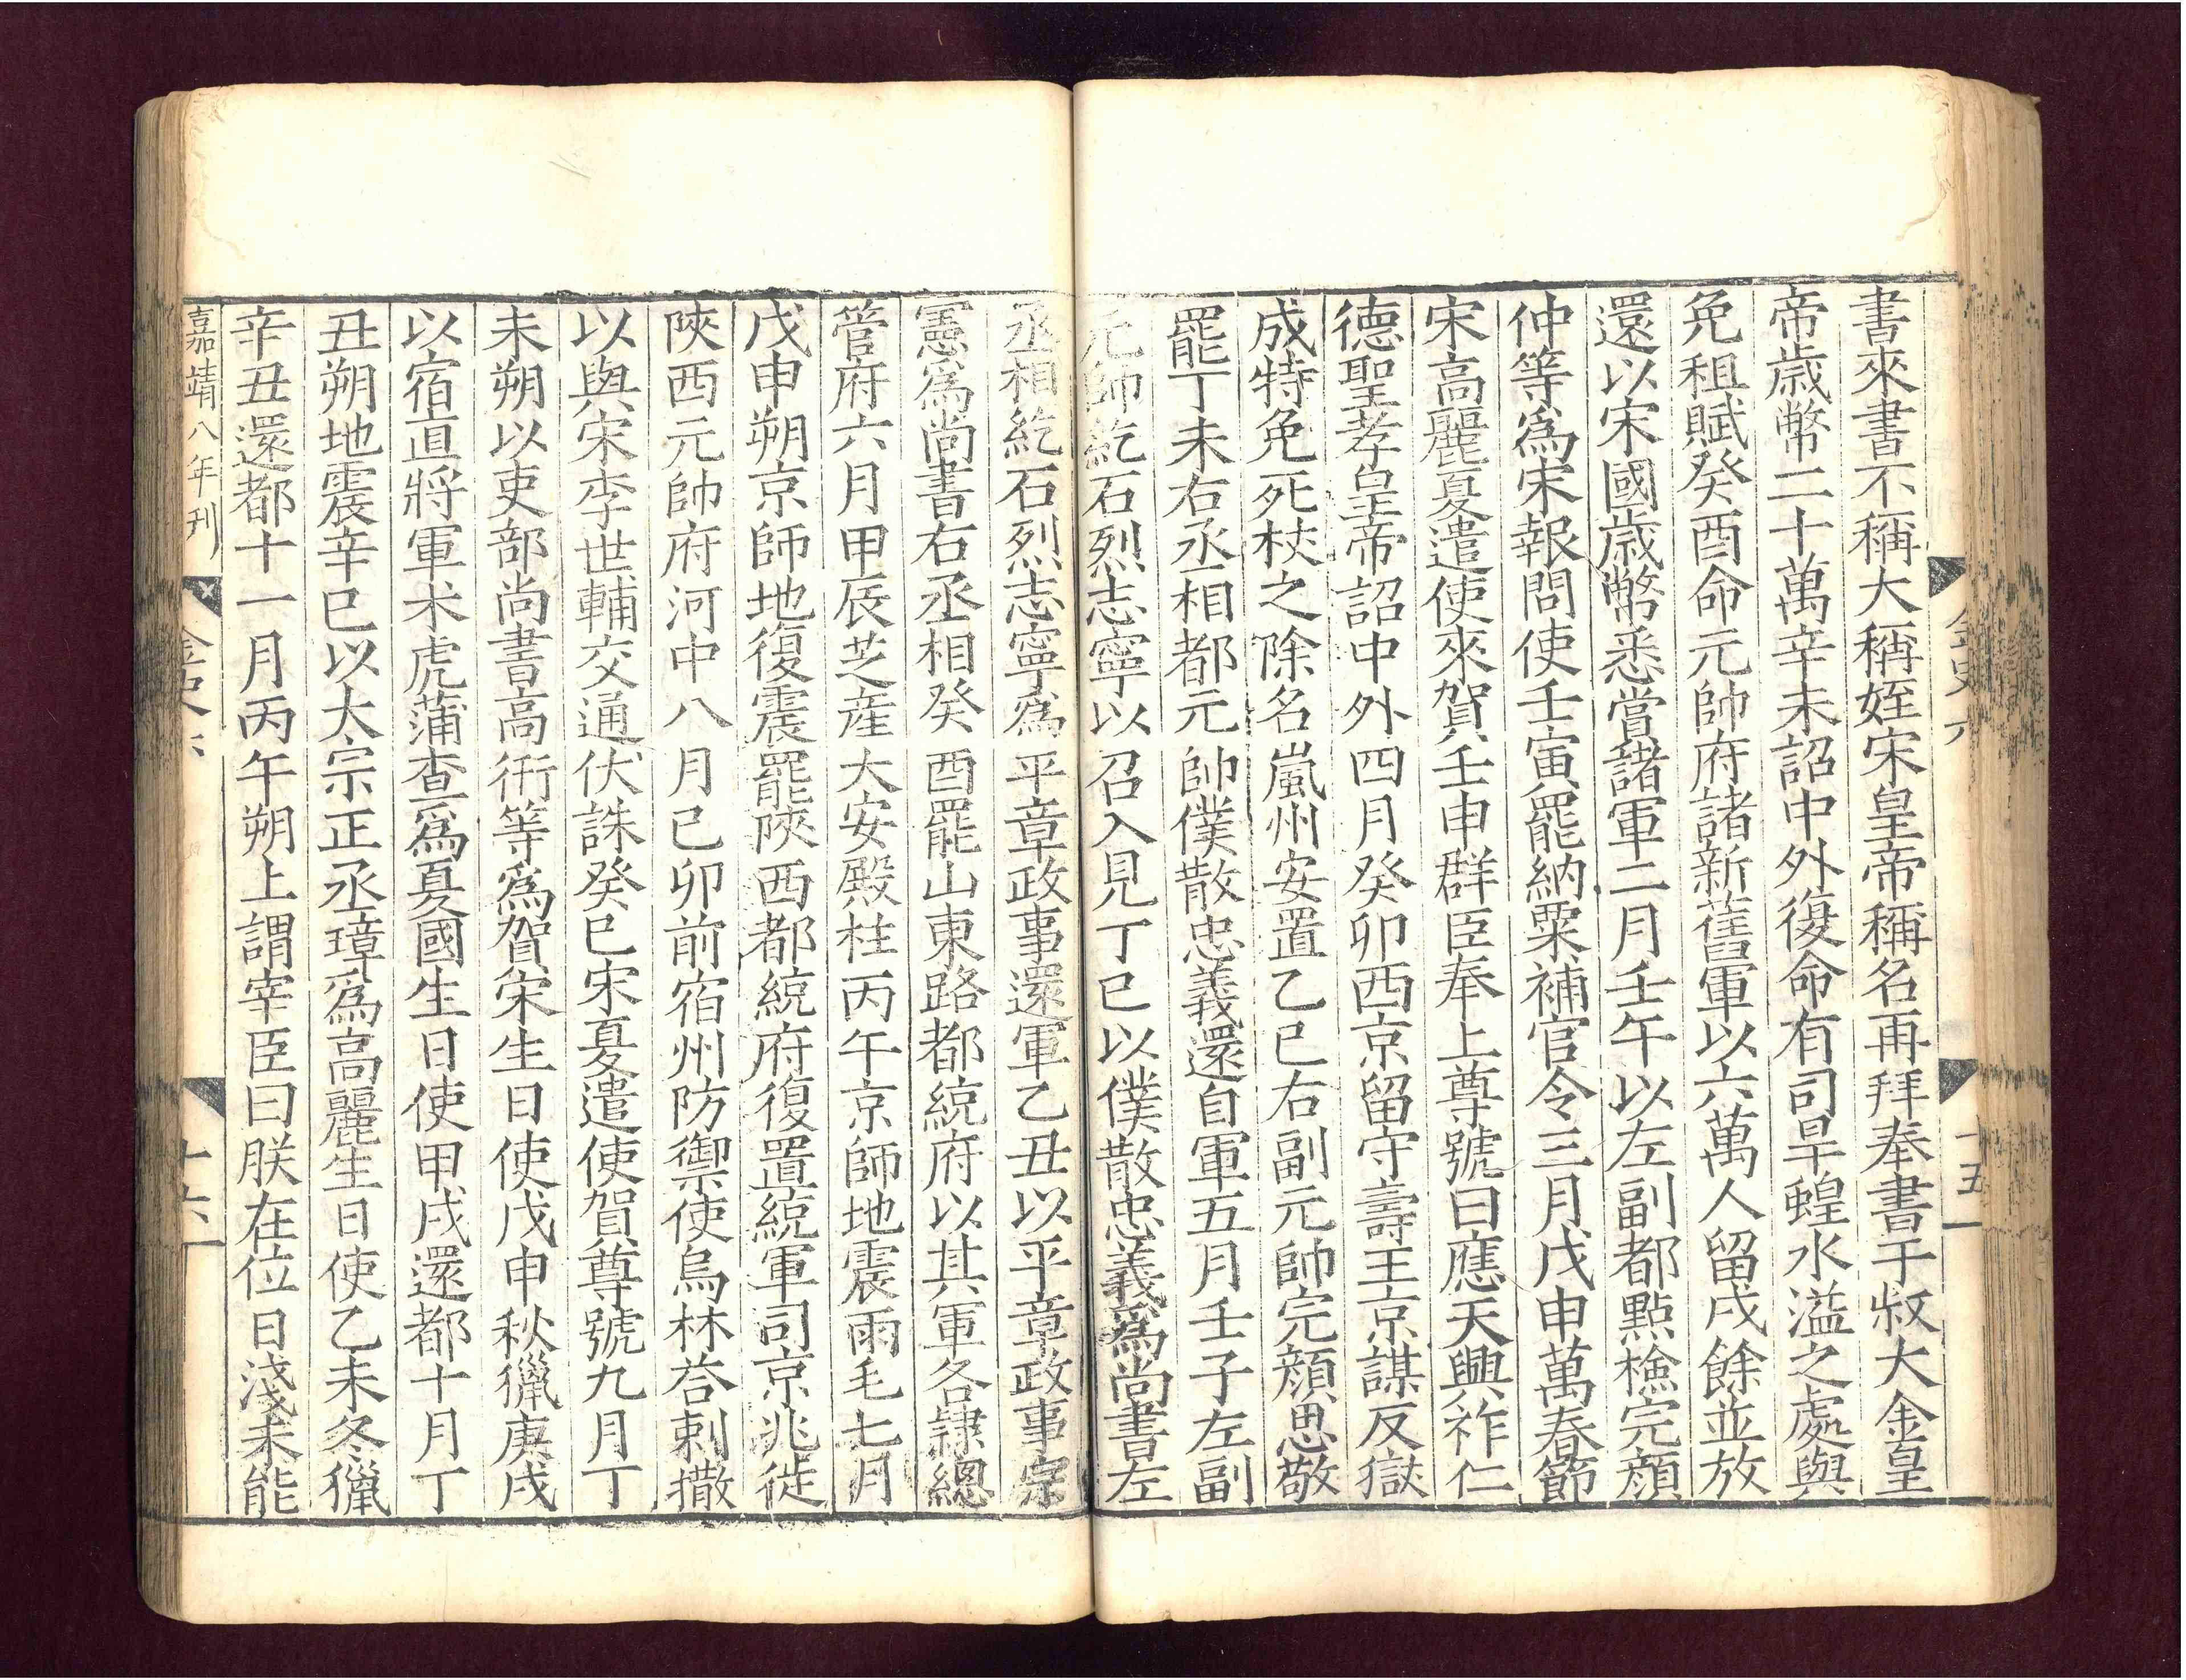 書來書不稱大稱姪宋皇帝稱名再拜奉書于叔大金皇
帝歲幣二十萬辛未詔中外復命有司旱蝗水溢之處與
免租賦癸酉命元帥府諸新舊軍以六萬人留戍餘並放
還以宋國歲幣悉賞諸軍二月壬午以左副都點檢完顏
仲等爲宋報問使壬寅罷納粟補官令三月戊申萬春節
宋高麗夏遣使來賀壬申群臣奉上尊號曰應天興祚仁
德聖孝皇帝詔中外四月癸卯西京留守壽王京謀反獄
成特免死杖之除名嵐州安置乙巳右副元帥完顏思敬
罷丁未右丞相都元帥僕散忠義還自軍五月壬子左副
元帥紇石烈志寧以召入見丁巳以僕散忠義爲尚書左
丞相紇石烈志寧爲平章政事還軍乙丑以平章政事宗
憲爲尚書右丞相癸酉罷山東路都統府以其軍各隷總
管府六月甲辰芝産大安殿柱丙午京師地震雨毛七月
戊申朔京師地復震罷陜西都統府復置統軍司京兆徙
陜西元帥府河中八月己卯前宿州防禦使烏林荅剌撒
以與宋李世輔交通伏誅癸巳宋夏遣使賀尊號九月丁
未朔以吏部尚書高衎等爲賀宋生日使戊申秋獵庚戌
以宿直將軍术虎蒲查爲夏國生日使甲戌還都十月丁
丑朔地震辛巳以大宗正丞璋爲高麗生日使乙未冬獵
辛丑還都十一月丙午朔上謂宰臣曰朕在位日淺未能
嘉靖八年刊 金史六 十六